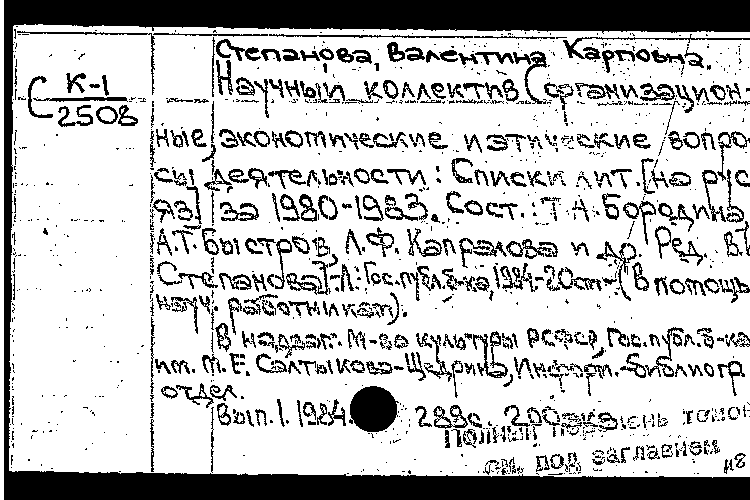 Степанова, Валентина Карповна.
К-1
С 2508
Научный коллектив (организацион-
ные, экономические и этические вопро
сы деятельности: Списки лит. [на рус
яз] за 1980-1983. Сост.: Т.А. Бородина,
А.Т. Быстров, Л.Ф. Капралова и др. Ред. В.К
Степанова].-Л.: Гос. публ. б-ка, 1984.-20см-(В помощь
науч. работникам).
В надзаг.: М-во культуры РСФСР, Гос. публ. б-ка
им. М.Е. Салтыкова-Щедрина, Информ.-библиогр
отдел.
Вып. 1. 1984. 288с. 200экз
Полный перечень томов
см. под заглавием